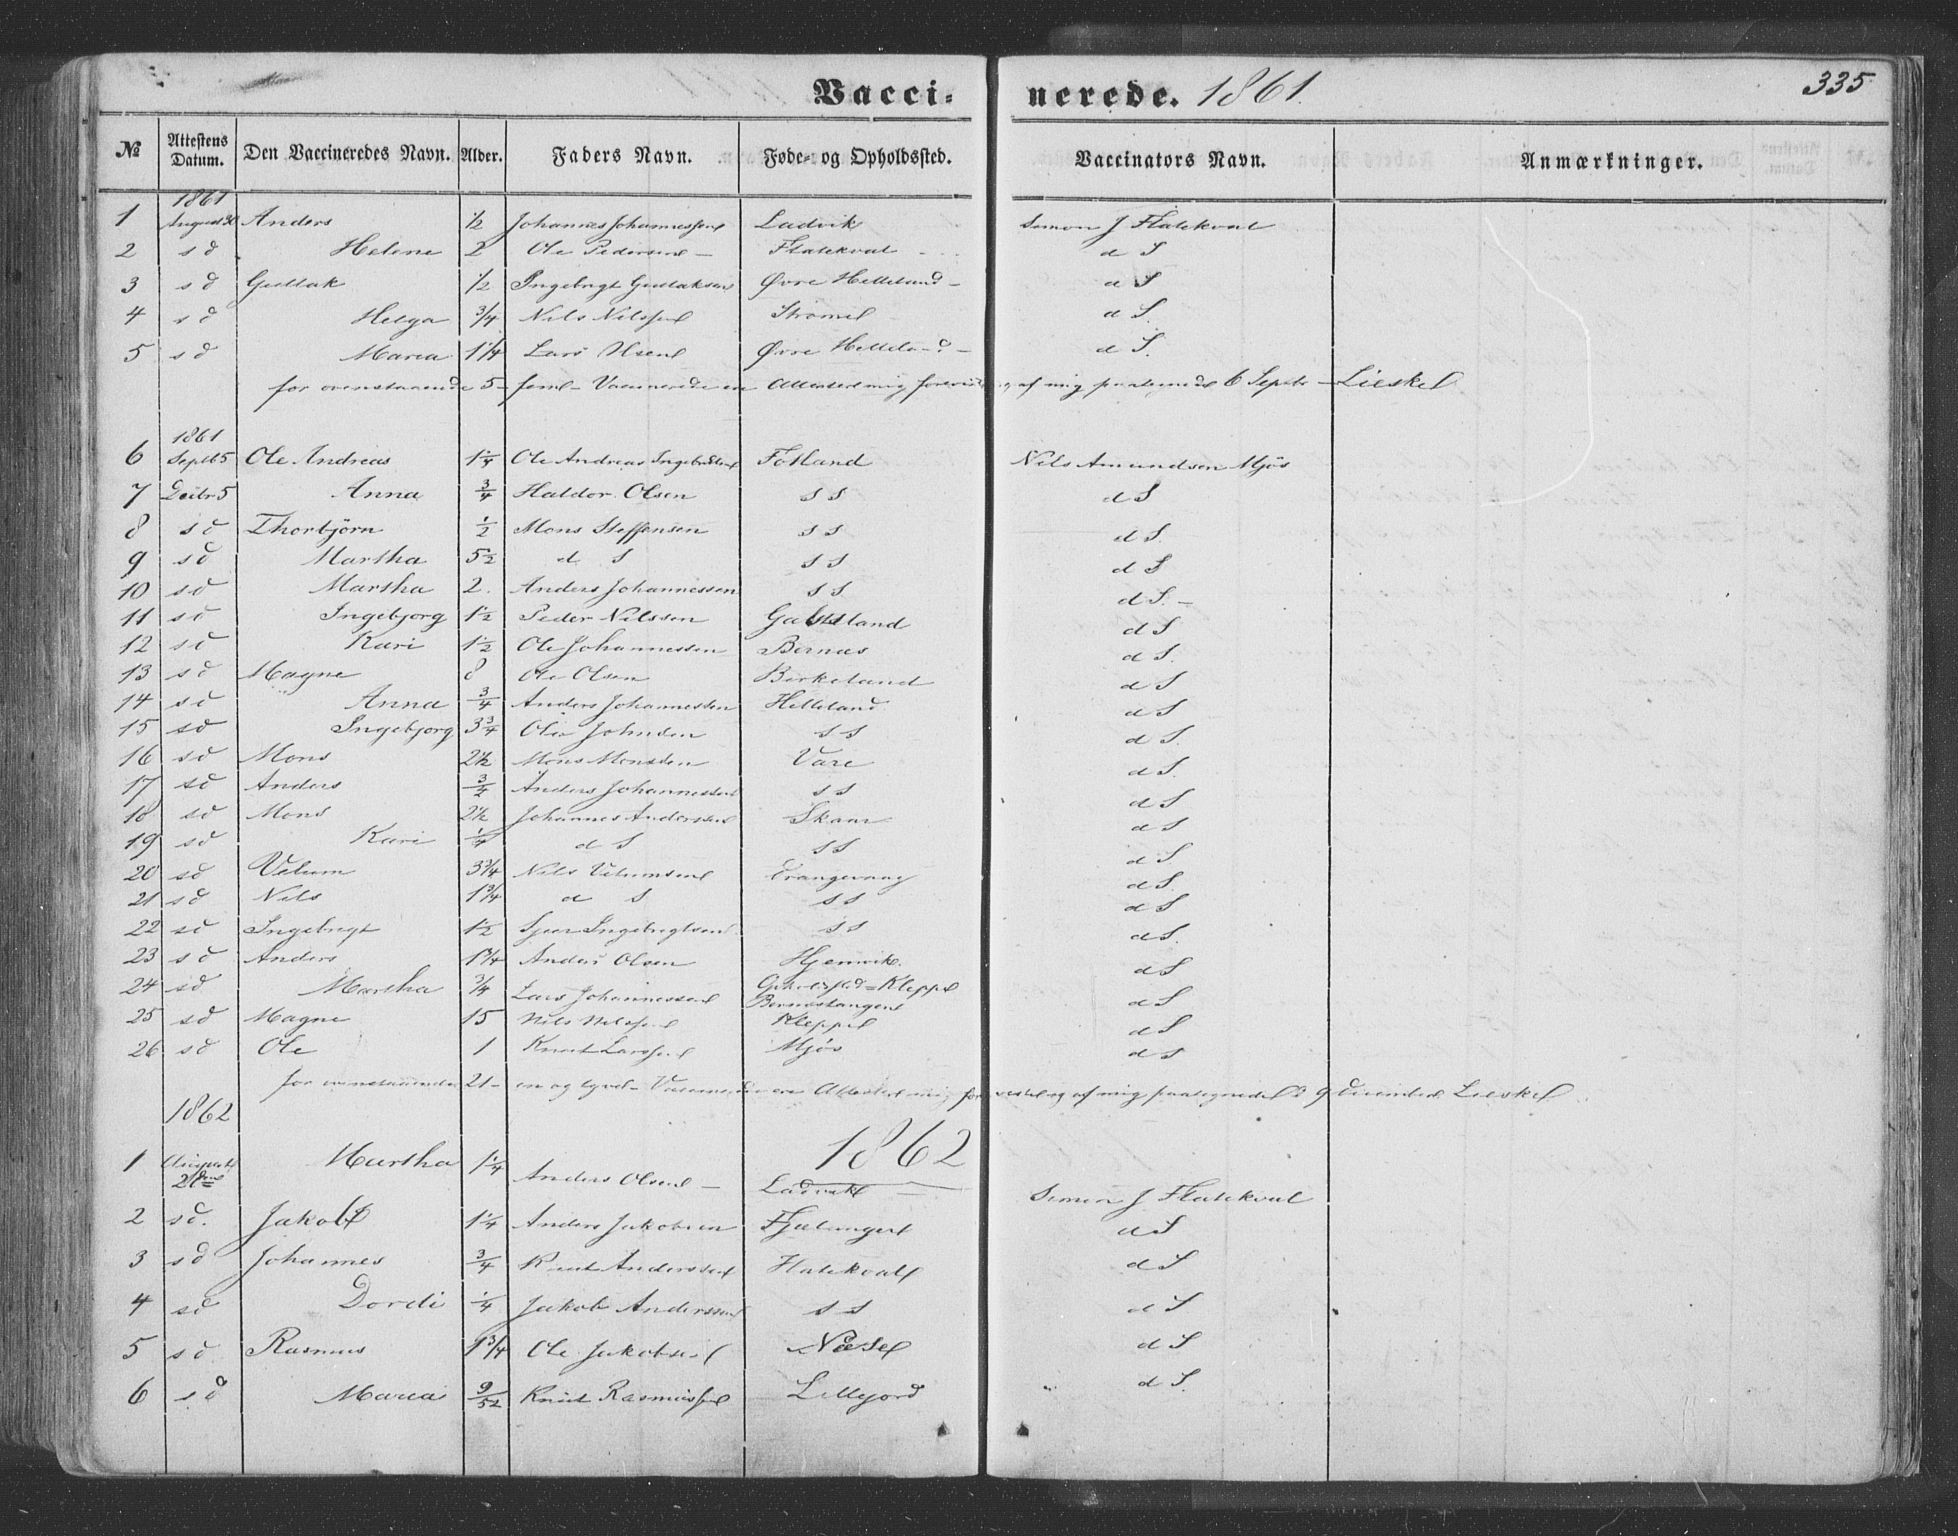 335
Vacci- nerede. 1861.
№ Attestens Datum. Den Vaccineredes Navn. Alder. Faders Navn. Føde- og Opholdssted. Vaccinators Navn. Anmærkninger.
1861
1 August Anders 1/2 Johannes Johannessen Ladvik Simon J Flatekval
2 s d Helene 2 Ole Pedersen - Flatekval d S
3 s d Gullak 1/2 Ingebrigt Gullaksen Øvre Helleland - d S
4 s d Helga 3/4 Nils Nilssen Strømel d S.
5 s d Maria 1 1/4 Lars Øvre Helleland - d S.
for ovenstaaende 5 - fem - Vaccinerede er af mig 6 Septr -
1861
6 Septb 5 Ole Andreas 1 1/4 Ole Andreas Fotland Nils Amundsen Mjøs
7 Decbr 5 Anna 3/4 Haldor Olsen s s d S
8 s d Thorbjörn 1/2 Mons Steffensen s s d S.
9 s d Martha 5 1/2 d S s s d S
10 s d Martha 2. Anders Johannessen s s d S. -
11 s d Ingebjorg 1 1/2 Peder Nilssen d S
12 s d Kari 1 1/2 Ole Johannessen Bernes d S.
13 s d Magne 8 Ole Olsen Birkeland d S
14 s d Anna 3/4 Anders Johannessen Helleland d S
15 s d Ingebjorg 3 3/4 Ole Johnsen s s d S.
16 s d Mons 2 1/2 Mons Monssen Vare d S.
17 s d Anders 3/4 Anders Johannessen s s d S
18 s d Mons 2 1/2 Johannes Anderssen Skaar d S
19 s d Kari 1/4 d S s s d S
20 s d Velum 3 3/4 Nils Velumsen Trangevaag d S.
21 s d Nils 1 3/4 d S s s d S
22 s d Ingebrigt 1 1/2 Sjur Ingebrigtsen s s d S.
23 s d Anders 1 3/4 Anders Olsen Hjemvik. d S
24 s d Martha 3/4 Lars Johannessen Kleppe Bernestangen d S
25 s d Magne 15 Nils Nilssen Kleppe d S
26 s d Ole 1 Knut Larssen Mjøs d S
for ovenstaaende 21 - en og tyve - Vaccinerede er af mig 9
1862
1862
1 August 21de Martha 1 1/4 Anders Olsen - Ladvik Simon J. Flatekval
2 s d. Jakob 1 1/4 Anders Jakobsen d S
3 s d Johannes 3/4 Knut Anderssen Flatekval d S
4 s d Dordi 1/4 Jakob Anderssen s s d S
5 s d Rasmus 1 3/4 Ole Jakobsen Næse d S
6 s d Maria 9/52 Knut Rasmussen Lillejord d S.